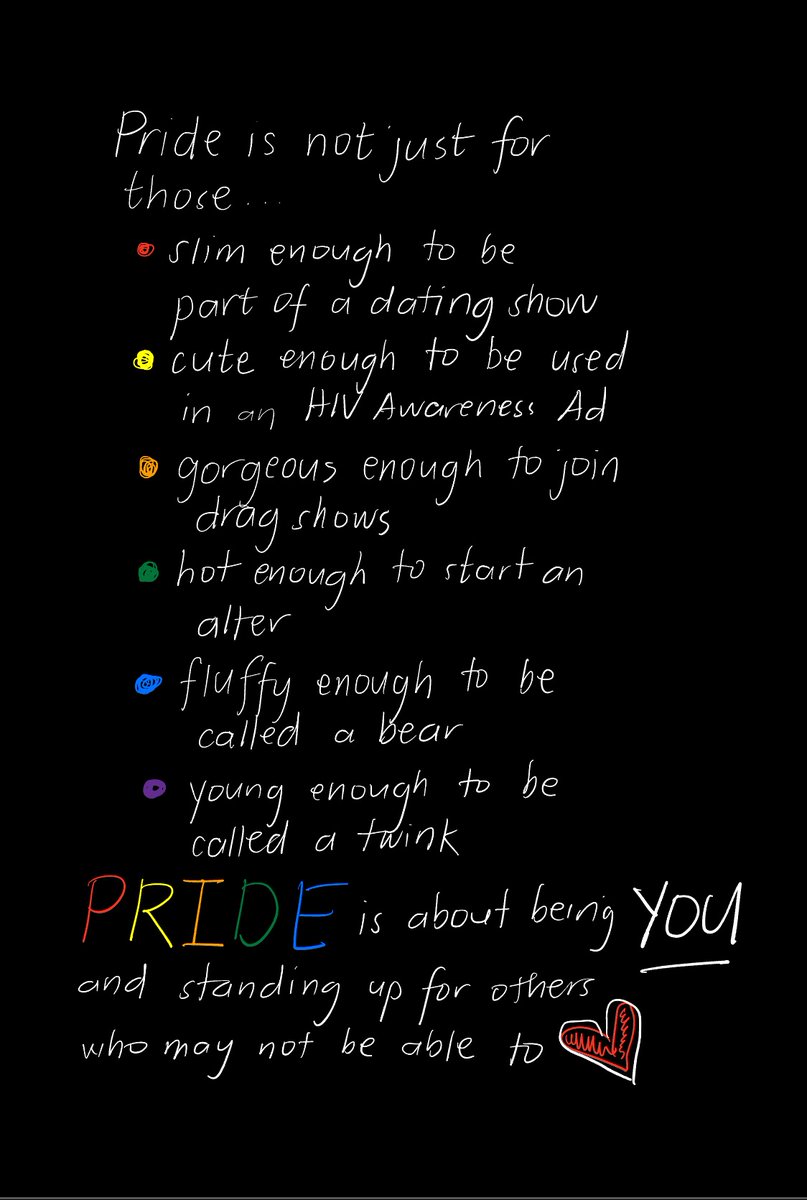 Pride is not just for
those...
• slim enough to be
part of a dating show
• cute enough to be used
in an HIV Awareness Ad
• gorgeous enough to join
drag shows
• hot enough to start an
alter
• fluffy enough to be
called a bear
• young enough to be
called a twink
PRIDE is about being YOU
and standing up for others
who may not be able to